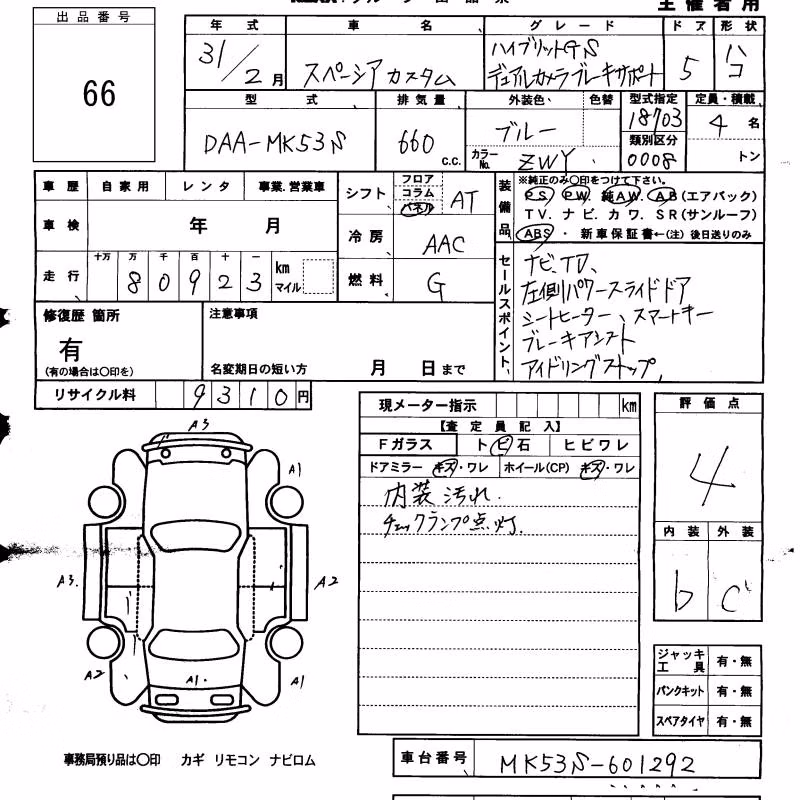 主催者用
出品番号
66
年式 車名 グレード ドア 形状
31/2月 スペーシアカスタム ハイブリットGS 5 ハコ
デュアルカメラブレーキサポート
型式 排気量 外装色 色替 型式指定 定員・積載
DAA-MK53S 660 c.c. ブルー 18703 4名
類別区分
カラーNo. ZWY 0008 トン
車歴 自家用 レンタ 事業.営業車
車検 年 月
走行 十万 万 千 百 十 一
80923 km
マイル
シフト フロア コラム パネル AT
冷房 AAC
燃料 G
装備品
※純正のみ○印をつけて下さい。
PS PW 純AW. AB(エアバック)
TV.ナビ.カワ.SR(サンルーフ)
ABS・新車保証書←(注)後日送りのみ
セールスポイント
ナビ、TV、
左側パワースライドドア
シートヒーター、スマートキー
ブレーキアシスト
アイドリングストップ,
修復歴 箇所
有
(有の場合は○印を)
注意事項
名変期日の短い方 月 日まで
リサイクル料 9310円
現メーター指示 km
【査定員記入】
Fガラス トビ石 ヒビワレ
ドアミラー キズ・ワレ ホイール(CP) キズ・ワレ
内装汚れ.
チェックランプ点灯.
評価点
4
内装 外装
b C
A3
A1
A3. A2
A2 A1. A1
ジャッキ工具 有・無
パンクキット 有・無
スペアタイヤ 有・無
事務局預り品は○印 カギ リモコン ナビロム
車台番号 MK53S-601292